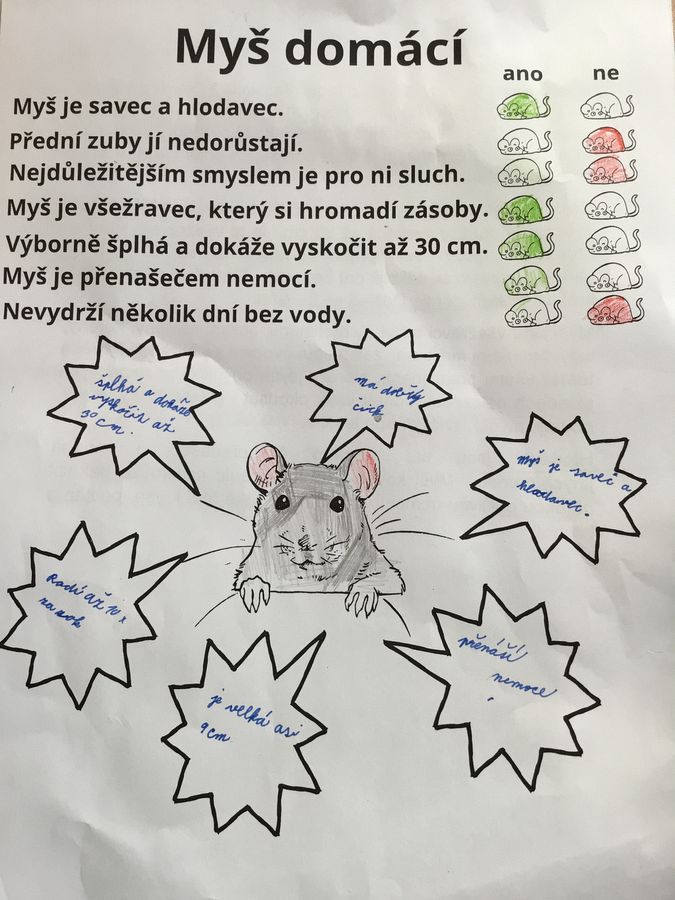 Myš domácí
ano ne
Myš je savec a hlodavec.
Přední zuby jí nedorůstají.
Nejdůležitějším smyslem je pro ni sluch.
Myš je všežravec, který si hromadí zásoby.
Výborně šplhá a dokáže vyskočit až 30 cm.
Myš je přenašečem nemocí.
Nevydrží několik dní bez vody.
šplhá a dokáže
vyskočit až
30 cm.
má dobrý
čich
myš je saveč a
hlodavec.
Rodí až 10 x
za rok
přenáší
nemoce
je velká asi
9 cm